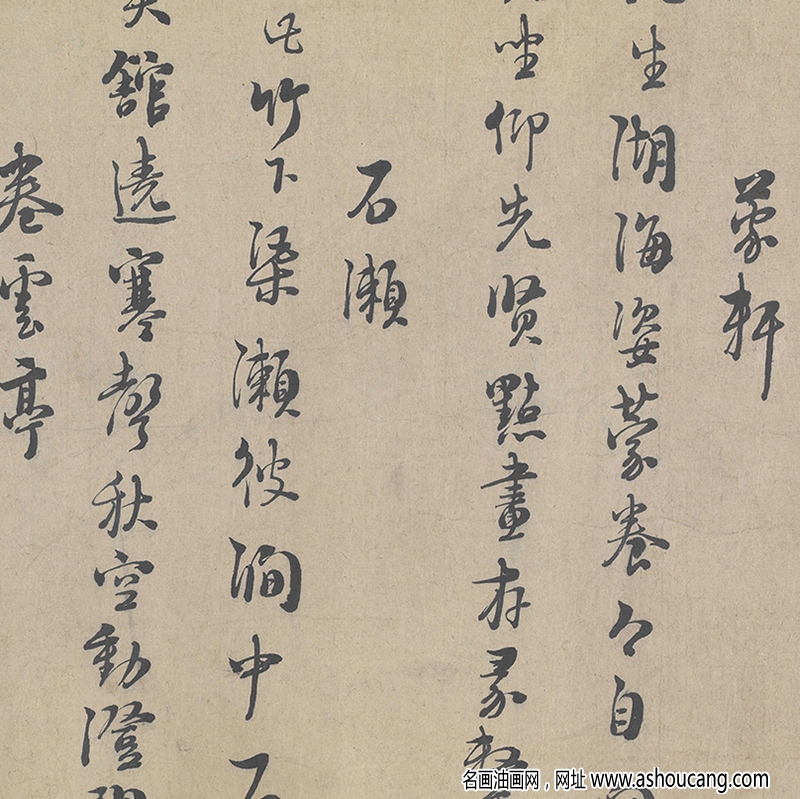 蒙軒
生湖海姿蒙養今自
坐仰先賢點畫存彖
石瀨
此竹下渠瀨彼澗中石
館遶寒聲秋空動澄
卷雲亭
名画油画网，网址 www.ashoucang.com